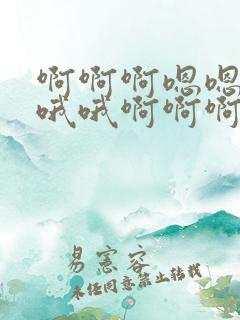 啊啊啊嗯嗯
哦哦啊啊啊
易宪容
未经同意禁止转载